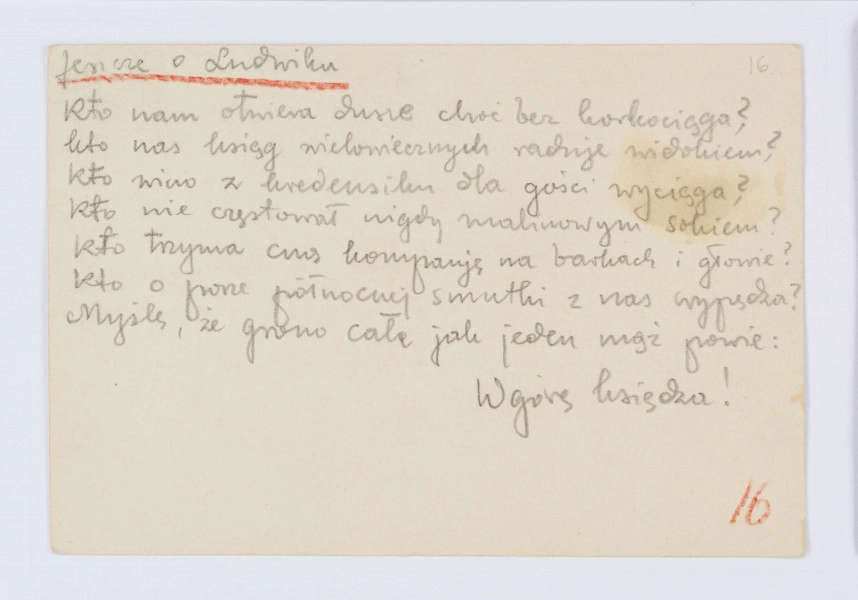 Jeszcze o Ludwiku
16.
Kto nam otwiera dusze choć bez korkociąga?
kto nas ksiąg wielowiecznych raduje widokiem?
kto wino z kredensiku dla gości wyciąga?
kto nie częstował nigdy malinowym sokiem?
kto trzyma kompanję na barkach i głowie?
kto o porze północnej smutki z nas wypędza?
Myślę, że grono całe jak jeden mąż powie:
W górę księdza!
16